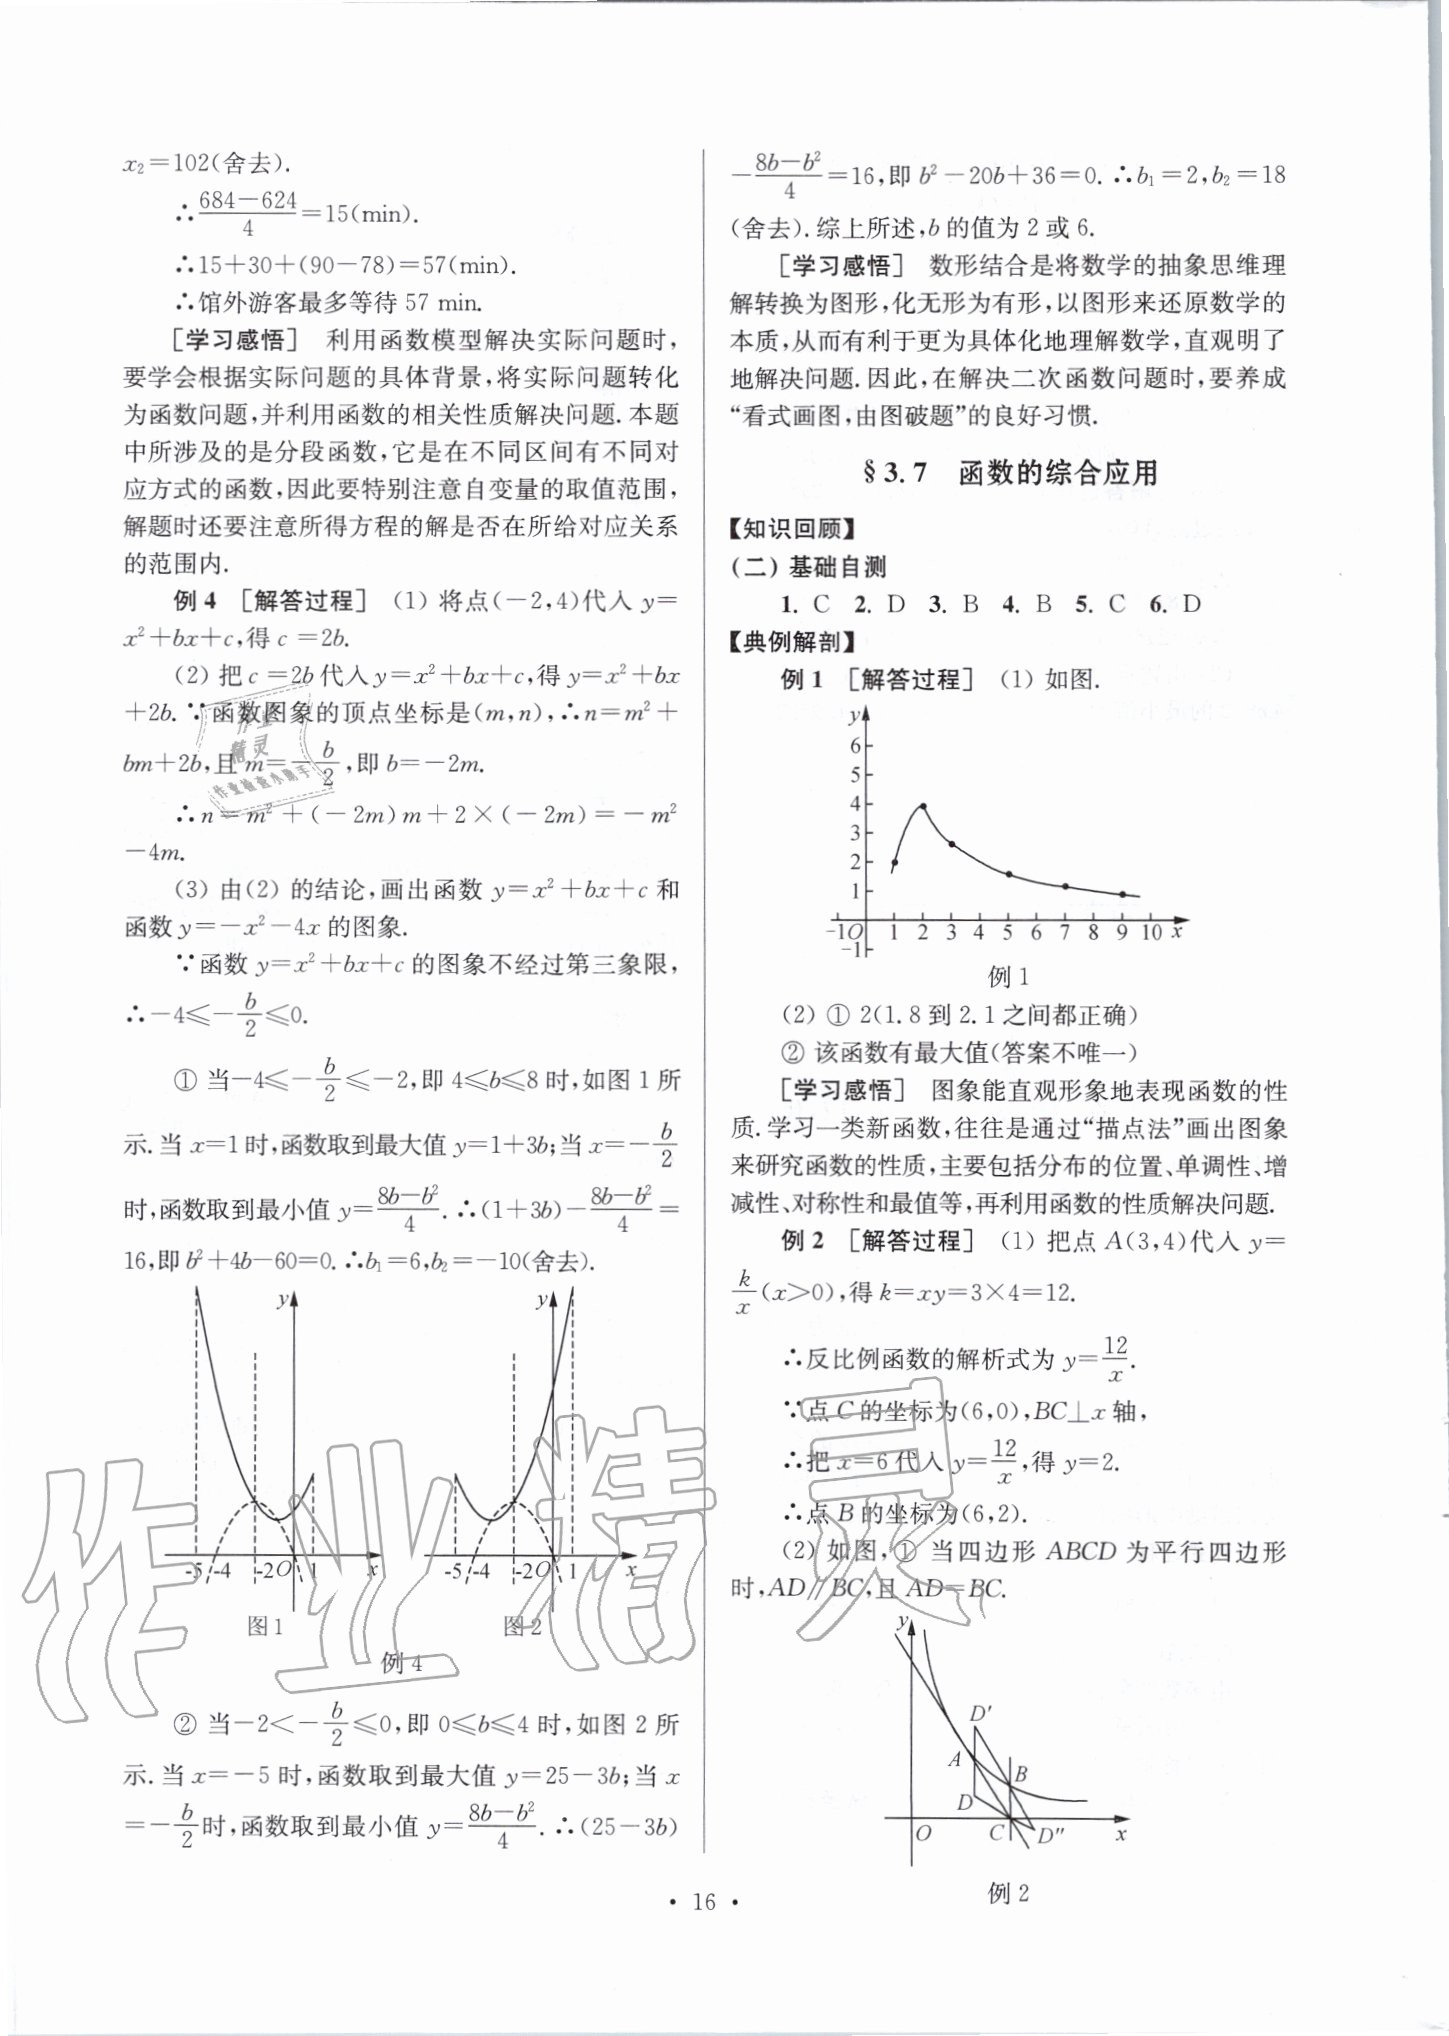 x₂=102(舍去).
∴(684-624)/4=15(min).
∴15+30+(90-78)=57(min).
∴馆外游客最多等待 57 min.
[学习感悟] 利用函数模型解决实际问题时,
要学会根据实际问题的具体背景,将实际问题转化
为函数问题,并利用函数的相关性质解决问题. 本题
中所涉及的是分段函数,它是在不同区间有不同对
应方式的函数,因此要特别注意自变量的取值范围,
解题时还要注意所得方程的解是否在所给对应关系
的范围内.
例 4 [解答过程] (1) 将点(-2,4)代入 y=
x²+bx+c,得 c =2b.
(2) 把 c =2b 代入 y=x²+bx+c,得 y=x²+bx
+2b. ∵函数图象的顶点坐标是(m,n),∴n=m²+
bm+2b,且 m=-b/2,即 b=-2m.
∴n=m²+(-2m)m+2×(-2m)=-m²
-4m.
(3) 由(2) 的结论,画出函数 y=x²+bx+c 和
函数 y=-x²-4x 的图象.
∵函数 y=x²+bx+c 的图象不经过第三象限,
∴-4≤-b/2≤0.
① 当-4≤-b/2≤-2,即 4≤b≤8 时,如图 1 所
示. 当 x=1 时,函数取到最大值 y=1+3b;当 x=-b/2
时,函数取到最小值 y=(8b-b²)/4. ∴(1+3b)-(8b-b²)/4=
16,即 b²+4b-60=0. ∴b₁=6,b₂=-10(舍去).
y
-5 -4 -2 O 1 x
图 1
y
-5 -4 -2 O 1 x
图 2
例 4
② 当-2<-b/2≤0,即 0≤b≤4 时,如图 2 所
示. 当 x=-5 时,函数取到最大值 y=25-3b;当 x
=-b/2时,函数取到最小值 y=(8b-b²)/4. ∴(25-3b)
-(8b-b²)/4=16,即 b²-20b+36=0. ∴b₁=2,b₂=18
(舍去). 综上所述,b 的值为 2 或 6.
[学习感悟] 数形结合是将数学的抽象思维理
解转换为图形,化无形为有形,以图形来还原数学的
本质,从而有利于更为具体化地理解数学,直观明了
地解决问题. 因此,在解决二次函数问题时,要养成
“看式画图,由图破题”的良好习惯.
§3.7 函数的综合应用
【知识回顾】
(二) 基础自测
1. C 2. D 3. B 4. B 5. C 6. D
【典例解剖】
例 1 [解答过程] (1) 如图.
y
6
5
4
3
2
1
-1 O 1 2 3 4 5 6 7 8 9 10 x
-1
例 1
(2) ① 2(1.8 到 2.1 之间都正确)
② 该函数有最大值(答案不唯一)
[学习感悟] 图象能直观形象地表现函数的性
质. 学习一类新函数,往往是通过“描点法”画出图象
来研究函数的性质,主要包括分布的位置、单调性、增
减性、对称性和最值等,再利用函数的性质解决问题.
例 2 [解答过程] (1) 把点 A(3,4)代入 y=
k/x(x>0),得 k=xy=3×4=12.
∴反比例函数的解析式为 y=12/x.
∵点 C 的坐标为(6,0),BC⊥x 轴,
∴把 x=6 代入 y=12/x,得 y=2.
∴点 B 的坐标为(6,2).
(2) 如图,① 当四边形 ABCD 为平行四边形
时,AD∥BC,且 AD=BC.
y
D′
A
B
D
O C D″ x
例 2
• 16 •
作业
精灵
作业检查小助手
作业精灵